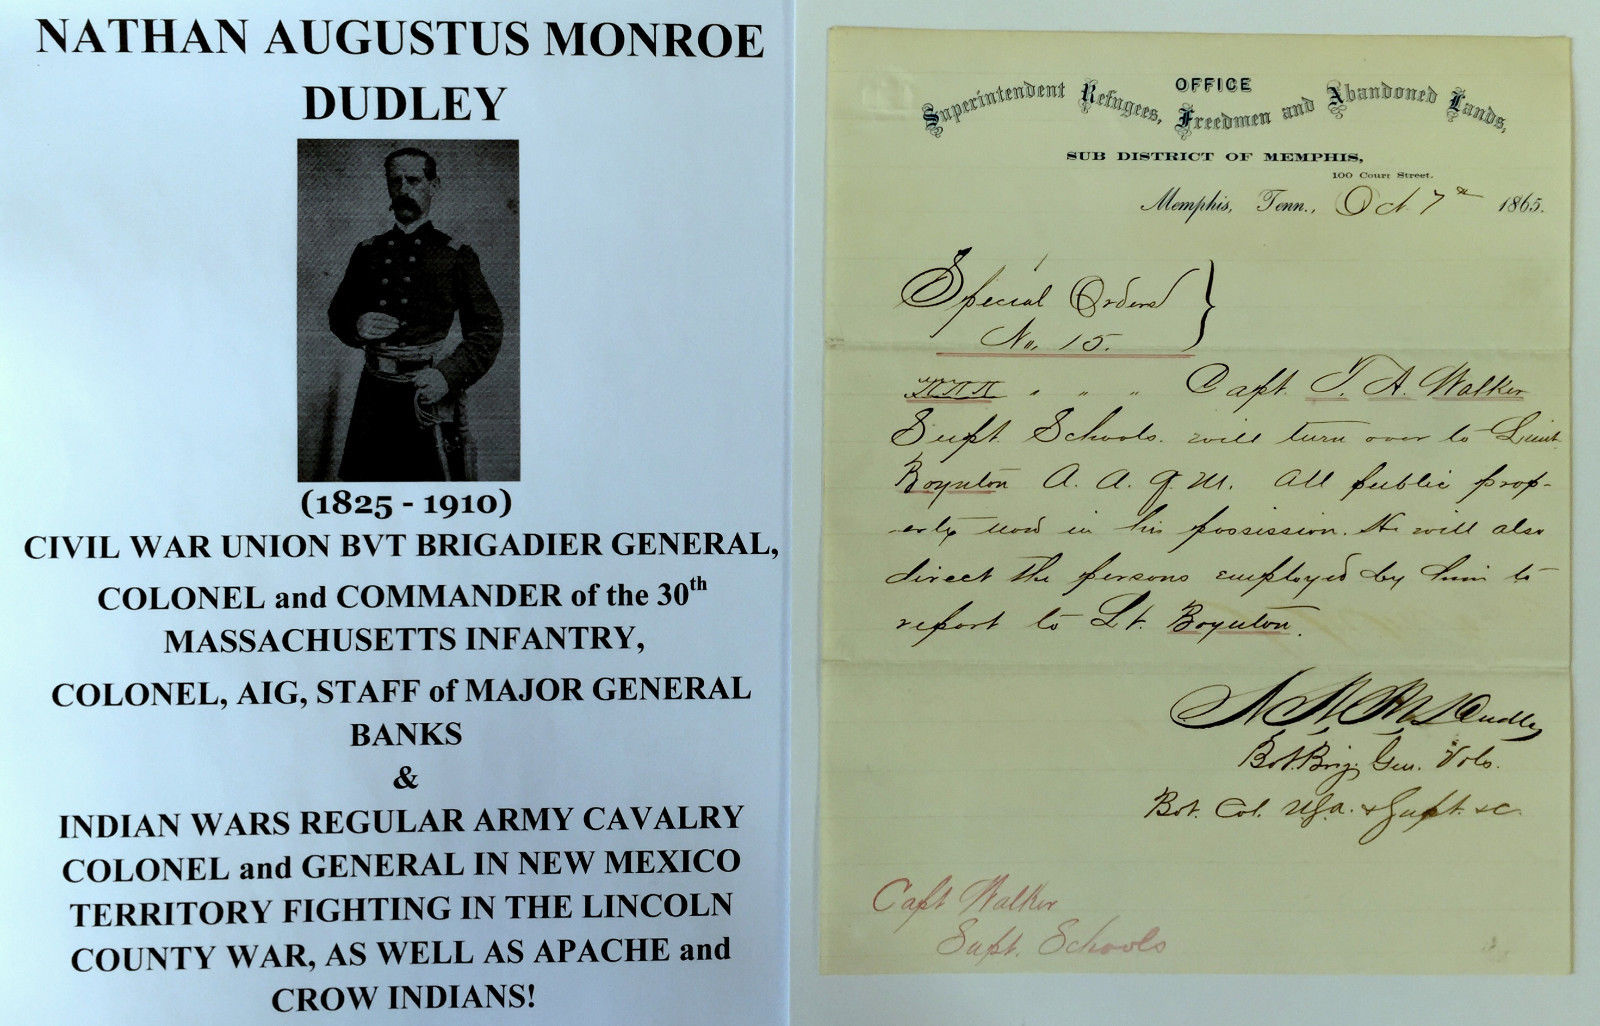 NATHAN AUGUSTUS MONROE
DUDLEY
(1825 - 1910)
CIVIL WAR UNION BVT BRIGADIER GENERAL,
COLONEL and COMMANDER of the 30th
MASSACHUSETTS INFANTRY,
COLONEL, AIG, STAFF of MAJOR GENERAL
BANKS
&
INDIAN WARS REGULAR ARMY CAVALRY
COLONEL and GENERAL IN NEW MEXICO
TERRITORY FIGHTING IN THE LINCOLN
COUNTY WAR, AS WELL AS APACHE and
CROW INDIANS!
OFFICE
Superintendent Refugees, Freedmen and Abandoned Lands,
SUB DISTRICT OF MEMPHIS,
100 Court Street.
Memphis, Tenn., Oct 7th 1865.
Special Orders }
No. 15.
" " " Capt. T. A. Walker
Supt. Schools. will turn over to Lieut
Boynton A. A. Q. M. all public prop-
erty now in his possession. He will also
direct the persons employed by him to
report to Lt. Boynton.
N A M Dudley
Bvt. Brig. Gen. Vols.
Bvt. Col. U.S.A. & Supt. &c.
Capt Walker
Supt. Schools